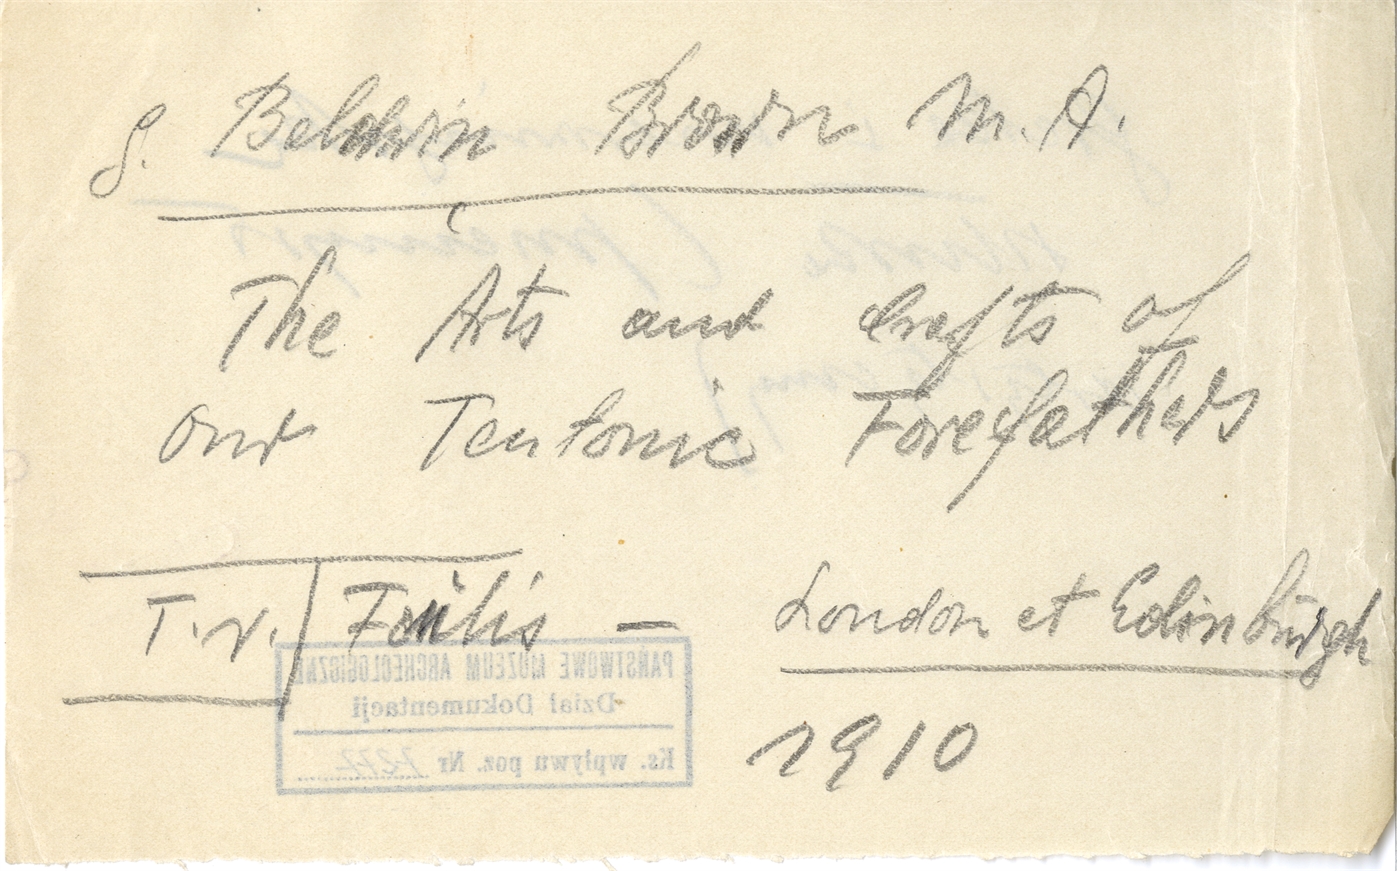 G. Beldwin Brown M. A.
The Arts and crafts of
our Teutonic Forefathers
T. N. Foulis — London et Edinburgh
1910
PAŃSTWOWE MUZEUM ARCHEOLOGICZNE
Dział Dokumentacji
Ks. wpływu poz. Nr